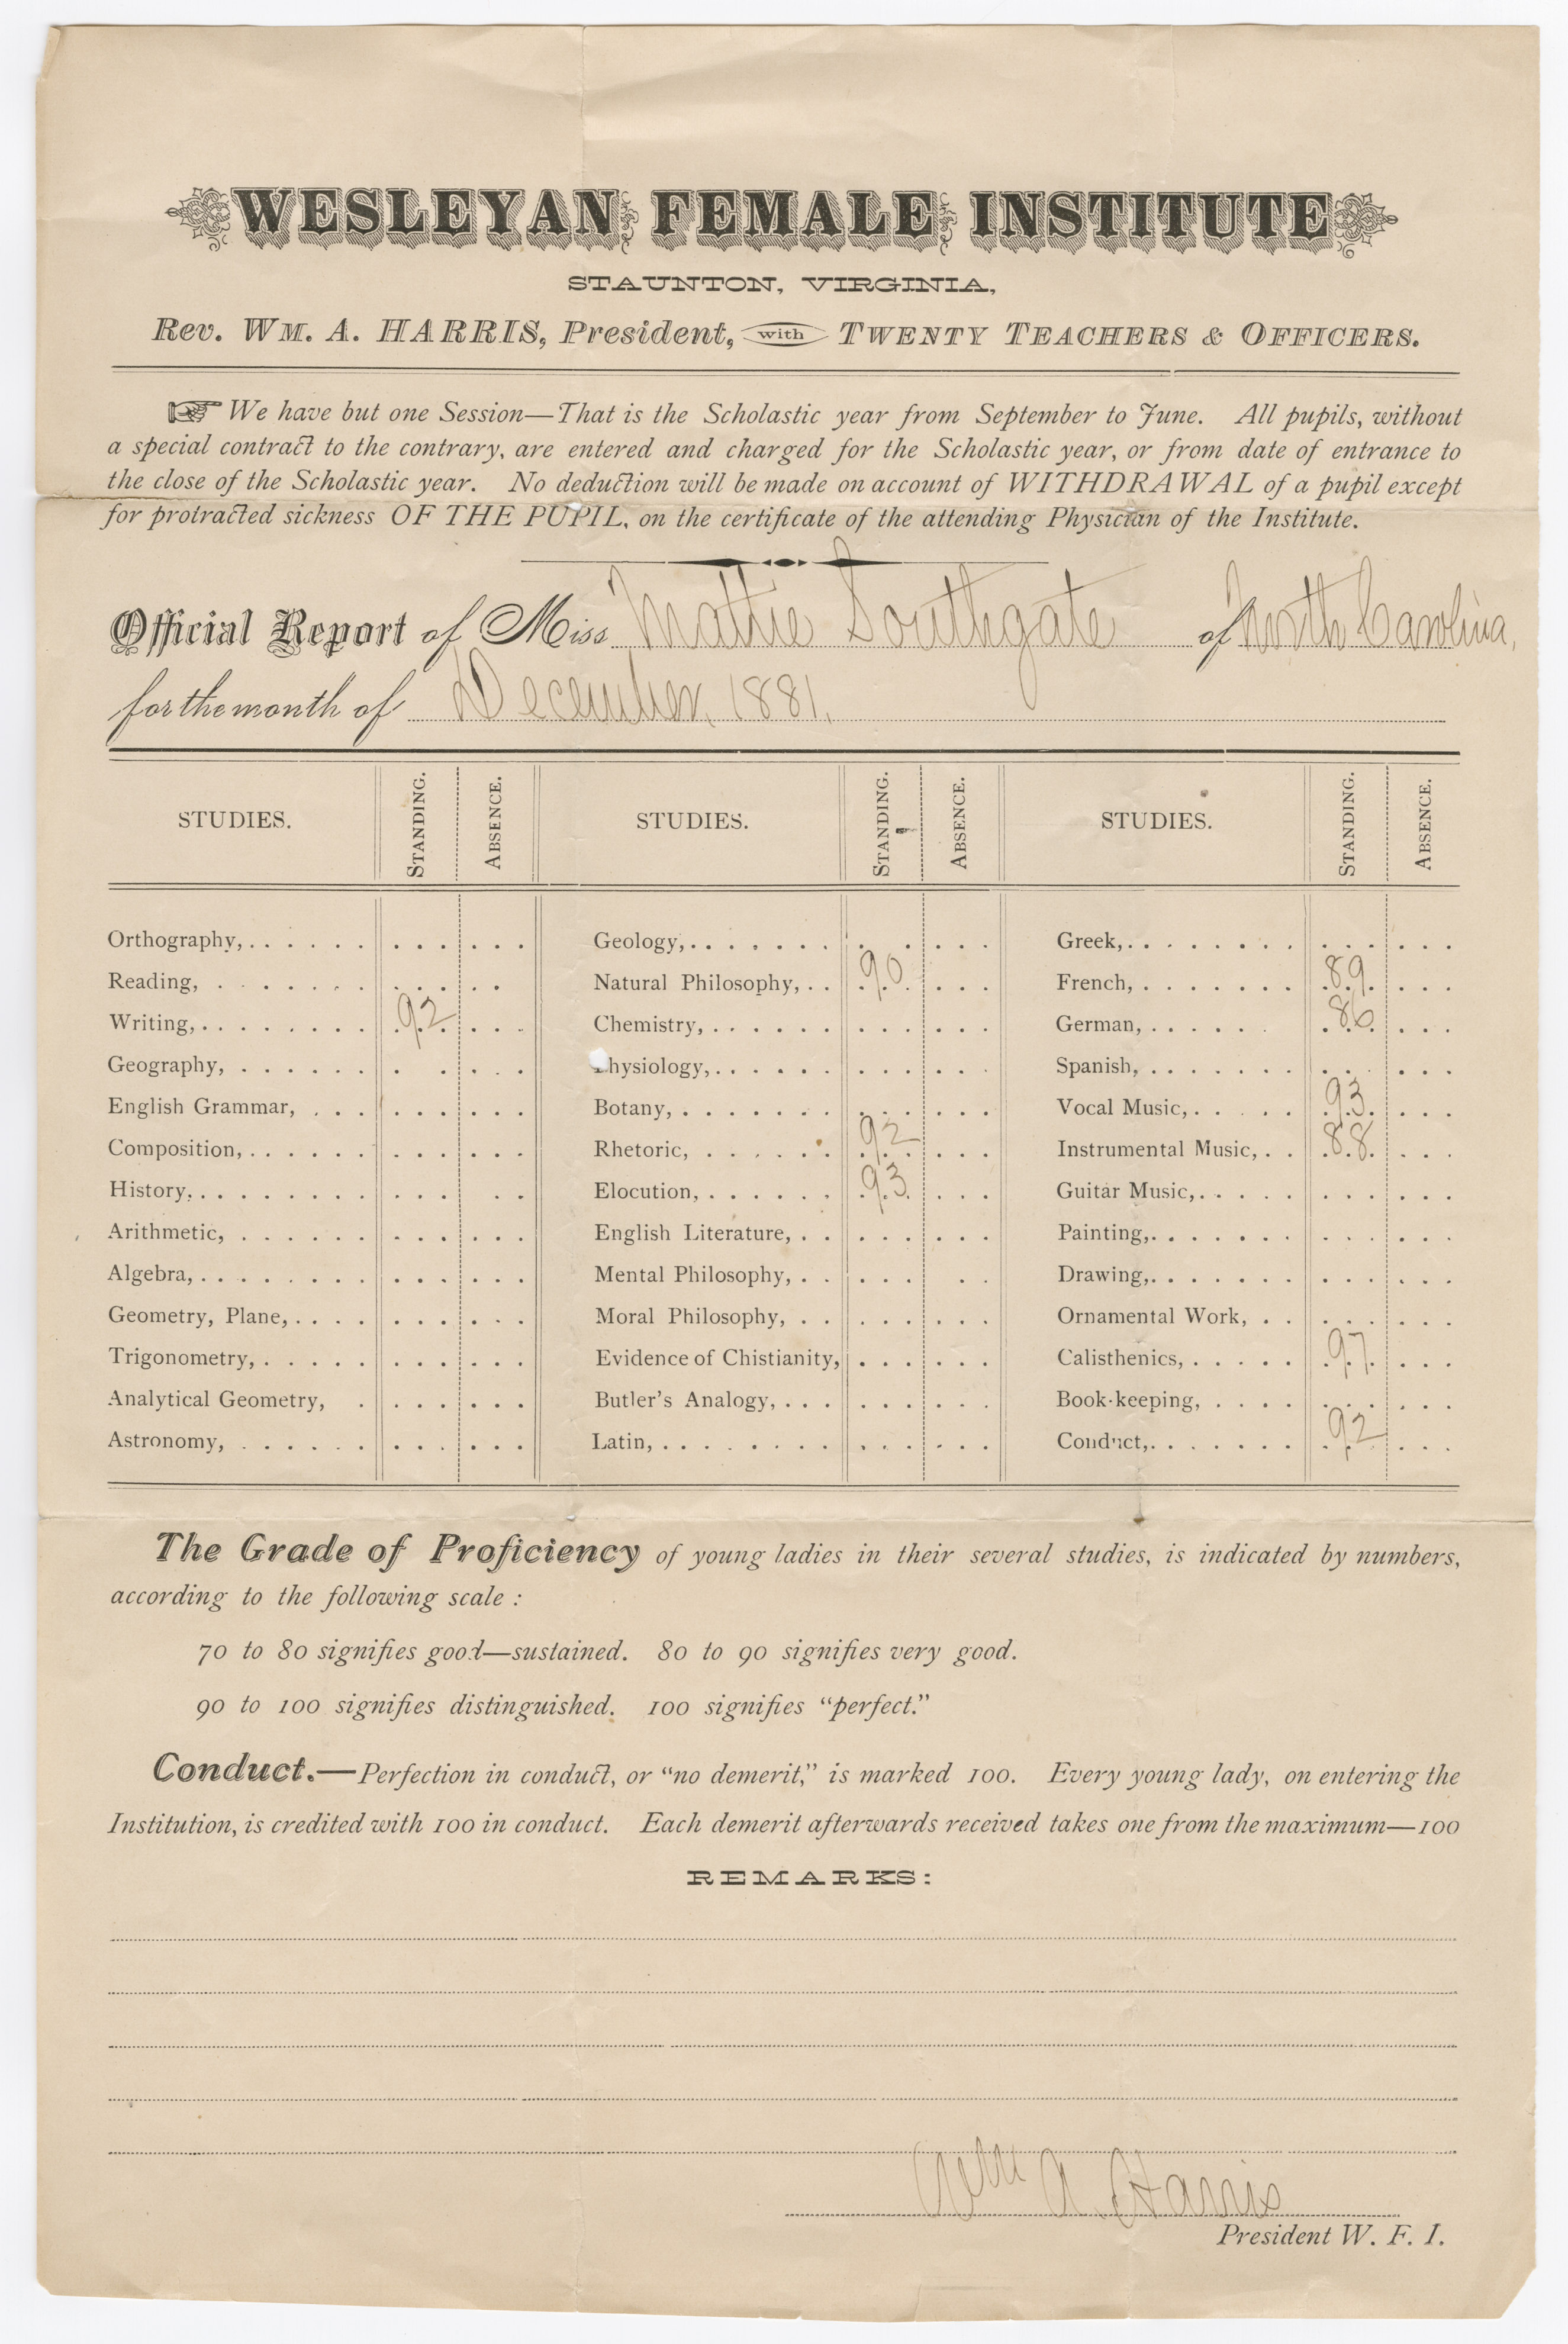 WESLEYAN FEMALE INSTITUTE
STAUNTON, VIRGINIA,
Rev. WM. A. HARRIS, President, with TWENTY TEACHERS & OFFICERS.
We have but one Session—That is the Scholastic year from September to June. All pupils, without
a special contract to the contrary, are entered and charged for the Scholastic year, or from date of entrance to
the close of the Scholastic year. No deduction will be made on account of WITHDRAWAL of a pupil except
for protracted sickness OF THE PUPIL, on the certificate of the attending Physician of the Institute.
Official Report of Miss Mattie Southgate of North Carolina,
for the month of December, 1881.
STUDIES. STANDING. ABSENCE. STUDIES. STANDING. ABSENCE. STUDIES. STANDING. ABSENCE.
Orthography, Geology, Greek,
Reading, Natural Philosophy, 90 French, 89
Writing, 92 Chemistry, German, 86
Geography, Physiology, Spanish,
English Grammar, Botany, Vocal Music, 93
Composition, Rhetoric, 92 Instrumental Music, 88
History, Elocution, 93 Guitar Music,
Arithmetic, English Literature, Painting,
Algebra, Mental Philosophy, Drawing,
Geometry, Plane, Moral Philosophy, Ornamental Work,
Trigonometry, Evidence of Chistianity, Calisthenics, 97
Analytical Geometry, Butler's Analogy, Book-keeping,
Astronomy, Latin, Conduct, 92
The Grade of Proficiency of young ladies in their several studies, is indicated by numbers,
according to the following scale :
70 to 80 signifies good—sustained. 80 to 90 signifies very good.
90 to 100 signifies distinguished. 100 signifies "perfect."
Conduct.—Perfection in conduct, or "no demerit," is marked 100. Every young lady, on entering the
Institution, is credited with 100 in conduct. Each demerit afterwards received takes one from the maximum—100
REMARKS:
Wm A. Harris
President W. F. I.